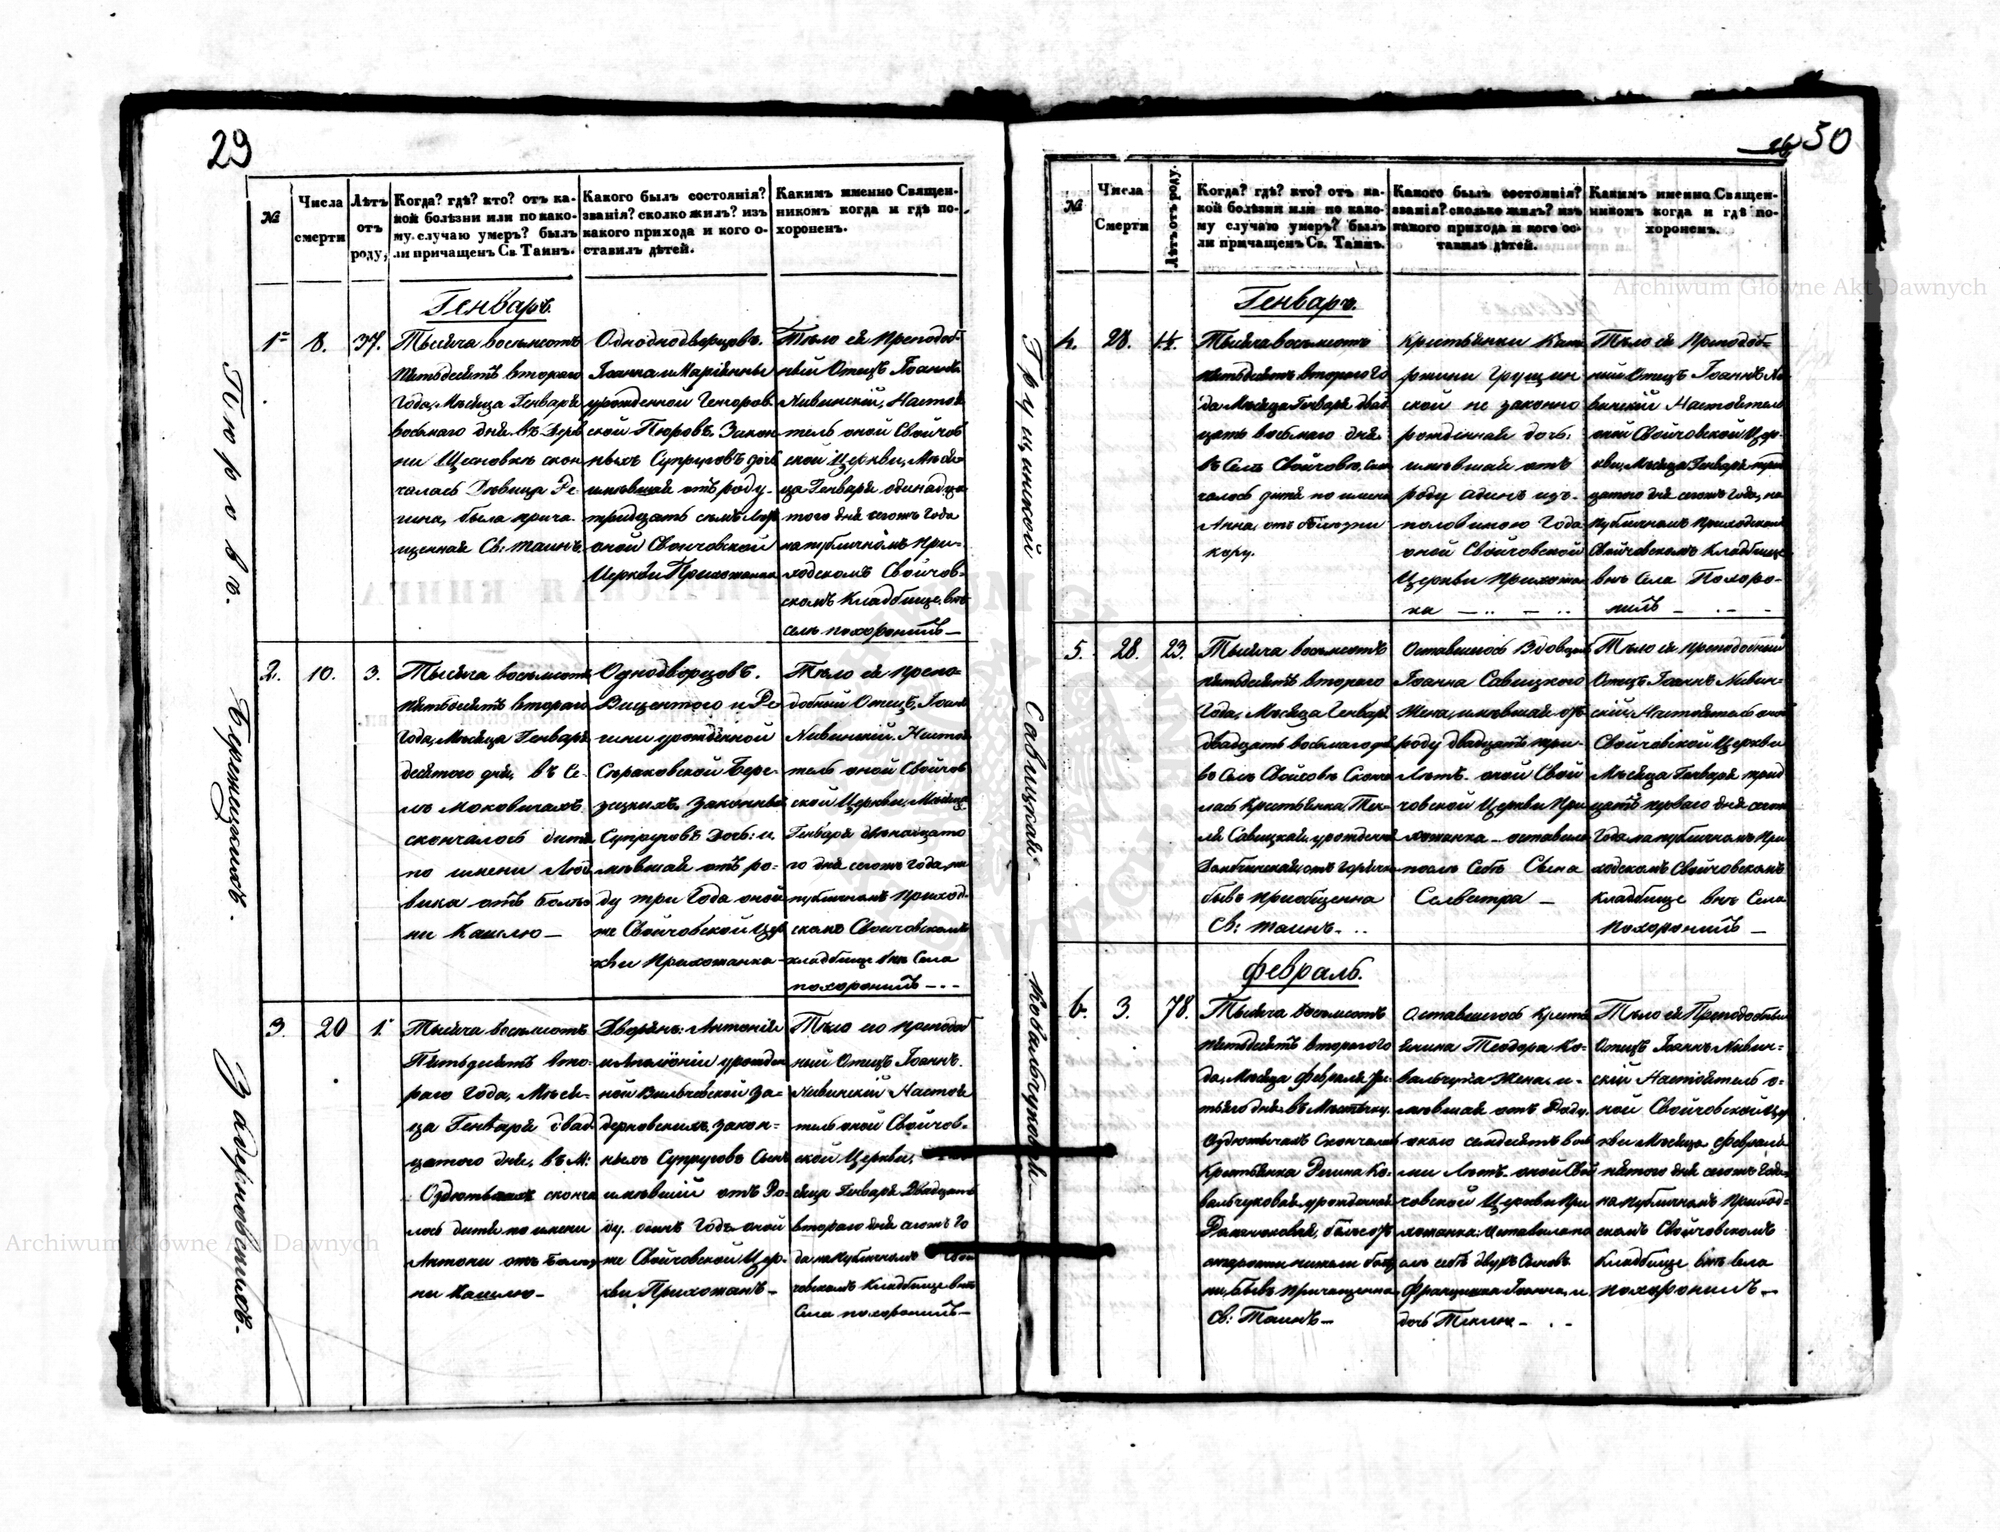 29
№
Числа
смерти
Лѣтъ
отъ
роду,
Когда? гдѣ? кто? отъ ка-
кой болѣзни или по како-
му случаю умеръ? былъ
ли причащенъ Св. Таинъ.
Какого былъ состоянія?
званія? сколко жилъ? изъ
какого прихода и кого о-
ставилъ дѣтей.
Какимъ именно Священ-
никомъ когда и гдѣ по-
хороненъ.
Генварь.
Пюровъ.
1
8.
37.
Тысяча восемьсотъ
пятьдесятъ втораго
года, Мѣсяца Генваря
восьмаго дня въ Дерев
ни Щесновкѣ скон
чалась Дѣвица Ре
гина, была прича
щенная Св: Таинъ.
Однодворцовъ.
Іоанна и Маріянны
урожденной
ской Пюровъ Закон
ныхъ Супруговъ дочь
имѣвшая отъ роду
тридцать семь лѣтъ
оной Свойчовской
Церкви Прихожанка
Тѣло ея Преподоб
ный Отецъ Іоаннъ
Ливинскій, Настоя
тель оной Свойчов
ской Церкви, Мѣся
ца Генваря одинадца
того дня сегожъ года
на публичномъ При-
ходскомъ Свойчов-
скомъ Кладбище внѣ
села похоронилъ—
Березицкихъ.
2.
10.
3.
Тысяча восемьсотъ
пятьдесятъ втораго
года, Мѣсяца Генваря
десятого дня, въ Се-
лѣ Маковичахъ
скончалось дитя
по имени Люд
вика отъ болѣз
ни Кашлю—
Однодворцовъ.
Вицентого и Ре
гини урожденной
Сераковской Бере-
зицкихъ Законныхъ
Супруговъ Дочь: и
мѣвшая отъ ро-
ду три года оной
же Свойчовской Цер
кви Прихожанка-
Тѣло ея Препо-
добный Отецъ, Іоаннъ
Ливинскій. Настоя
тель оной Свойчов
ской Церкви, Мѣсяца
Генваря двенадцато
го дня сегожъ года, на
публичномъ Приход-
скомъ Свойчовскомъ
кладбище внѣ Села
похоронилъ—
Задерновскихъ.
3.
20
1
Тысяча восемьсотъ
Пятьдесятъ вто-
раго года, Мѣся-
ца Генваря двад
цатого дня, въ М:
Оздютычахъ сконча
лось дитя по имени
Антони отъ Болѣз
ни Кашлю—
Дворянъ: Антонія
и Аполоніи урожден
ной Вильчевской За-
дерновскихъ, закон-
ныхъ Супруговъ Сынъ
имѣвшій отъ Ро-
ду одинъ годъ оной
же Свойчовской Цер-
кви Прихожанъ—
Тѣло ею преподоб
ный Отецъ Іоаннъ
Ливинскій Настоя
тель оной Свойчов-
ской Церкви,
Генваря Двадцать
втораго дня сегожъ го
да на Публичномъ
човскомъ Кладбище внѣ
Села похоронилъ—
30
№
Числа
Смерти
Лѣтъ отъ роду.
Когда? гдѣ? кто? отъ ка-
кой болѣзни или по како-
му случаю умеръ? былъ
ли причащенъ Св. Таинъ.
Какого былъ состоянія?
званія? сколько жилъ? изъ
какого прихода и кого ос-
тавилъ дѣтей.
Какимъ именно Священ-
никомъ когда и гдѣ по-
хороненъ.
Генварь.
Грущинской
4.
28.
Тысяча восемьсотъ
пятьдесятъ втораго го
да, Мѣсяца Генваря двад
цать восьмаго дня
въ Селѣ Свойчовѣ, скон
чалось дитя по имени
Анна, отъ болѣзни
кору.
Крестьянки Кате
рини Грущин
ской не законно
рожденная дочь:
имѣвшая отъ
роду одинъ изъ
половиною года
оной Свойчовской
Церкви Прихожа
нка
Тѣло ея Преподоб-
ный Отецъ Іоаннъ Ли
винскій Настоятель
оной Свойчовской Цер-
кви, Мѣсяца Генваря трид
цатого дня сегожъ года, на
публичномъ Приходскомъ
Свойчовскомъ Кладбище
внѣ Села Похоро-
нилъ
Савицкай-
5.
28.
23.
Тысяча восемьсотъ
пятьдесятъ втораго
года, Мѣсяца Генваря
двадцать восьмаго дня
въ Селѣ Свойчовѣ Сконча
лась Крестьянка, Тек-
ля Савицкая, урожденная
отъ горячки
бывъ приобщенна
Св: Таинъ.
Оставшегось Вдовцемъ
Іоанна Савицкого
Жена, имѣвшая отъ
роду двадцать три
Лѣтъ. оной Свой
човской Церкви При
хожанка оставила
послѣ Себѣ Сына
Селвитра—
Тѣло ея преподобный
Отецъ Іоаннъ Ливин-
скій, Настоятель оной
Свойчовской Церкви
Мѣсяца Генваря трид
цать первого дня сегожъ
года на публичномъ При
ходскомъ Свойчовскомъ
Кладбище внѣ Села
похоронилъ—
Февраль.
Ковальчуковой
6.
3.
78.
Тысяча восемьсотъ
пятьдесятъ втораго го
да, Мѣсяца Февраля тре-
тьяго дня въ Мѣстечку.
Оздютычахъ Скончалась
Крестьянка Регина Ко-
вальчуковая урожденная
бывъ причащенна
Св: Таинъ—
Оставшегось Крестья
янина Теодора Ко-
вальчука Жена. и-
мѣвшая отъ Роду
около семдесятъ вось
ми Лѣтъ. оной Свой
човской Церкви При
хожанка: Оставила по
слѣ себѣ двухъ Сыновъ
Францишка Іоанна, и
дочь Теклю—
Тѣло ея Преподобный
Отецъ Іоаннъ Ливин-
скій Настоятель о-
ной Свойчовской Цер
кви Мѣсяца Февраля
пятого дня сегожъ года
на публичномъ Приход-
скомъ Свойчовскомъ
Кладбище внѣ Села
похоронилъ—
Archiwum Główne Akt Dawnych
Archiwum Główne Akt Dawnych